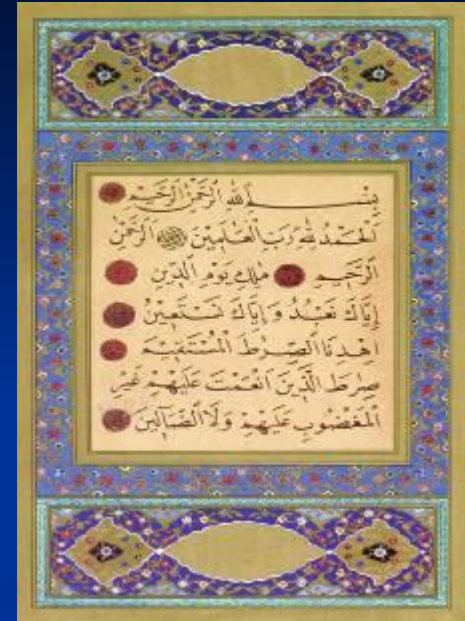 بِسْمِ اللهِ الرَّحْمٰنِ الرَّحِيمِ
اَلْحَمْدُ لِلّٰهِ رَبِّ الْعٰلَمِينَ اَلرَّحْمٰنِ
الرَّحِيمِ مٰلِكِ يَوْمِ الدِّينِ
اِيَّاكَ نَعْبُدُ وَاِيَّاكَ نَسْتَعِينُ
اِهْدِنَا الصِّرَاطَ الْمُسْتَقِيمَ
صِرَاطَ الَّذِينَ اَنْعَمْتَ عَلَيْهِمْ غَيْرِ
الْمَغْضُوبِ عَلَيْهِمْ وَلَا الضَّالِّينَ